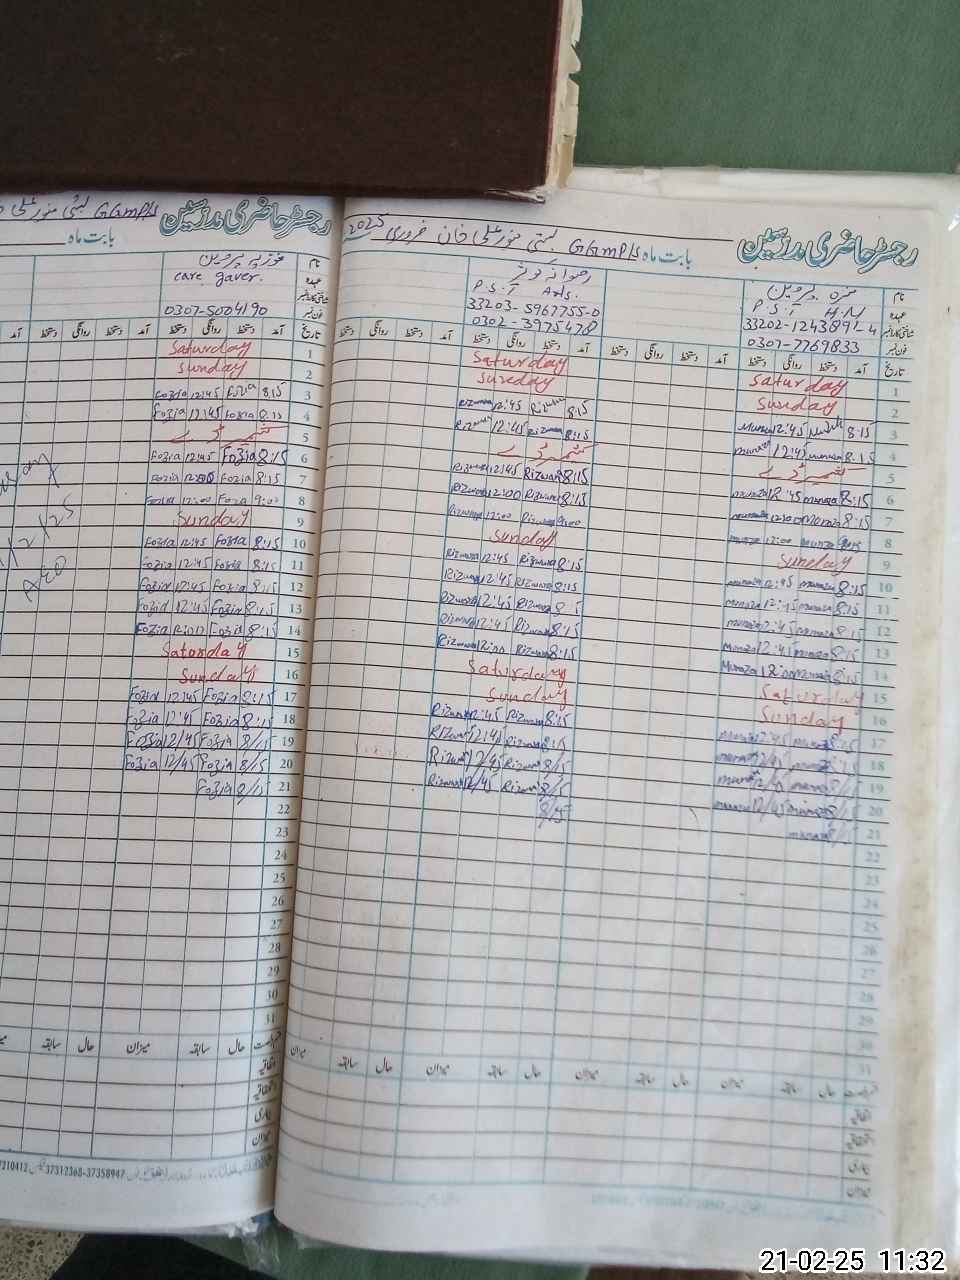 رجسٹر حاضری مدرسین
بابت ماہ GGmPls بستی منور علی خان فروری 2025
نام
منزہ پروین
عہدہ
P.S.T H.M
شناختی کارڈ نمبر
33202-1243891-4
فون نمبر
0307-7769833
رضوانہ کوثر
P.S.T Ads.
33203-5967755-0
0302-3975478
تاریخ آمد دستخط روانگی دستخط آمد دستخط روانگی دستخط
1 Saturday Saturday
2 Sunday Sunday
3 8:15 12:45 Munaza 8:15 12:45 Rizwana
4 8:15 munaza 12:45 munaza 8:15 Rizwana 12:45 Rizwana
5 کشمیر ڈے کشمیر ڈے
6 8:15 munaza 12:45 munaza 8:15 Rizwana 12:45 Rizwana
7 8:15 Munaza 12:00 munaza 8:15 Rizwana 12:00 Rizwana
8 munaza 12:00 munaza 9:00 Rizwana 12:00 Rizwana
9 Sunday Sunday
10 8:15 munaza 12:45 munaza 8:15 Rizwana 12:45 Rizwana
11 8:15 munaza 12:45 munaza 8:15 Rizwana 12:45 Rizwana
12 8:15 munaza 12:45 munaza 8:15 Rizwana 12:45 Rizwana
13 8:15 munaza 12:45 munaza 8:15 Rizwana 12:45 Rizwana
14 8:15 munaza 12:00 Munaza 8:15 Rizwana 12:00 Rizwana
15 Saturday Saturday
16 Sunday Sunday
17 8:15 munaza 12:45 munaza 8:15 Rizwana 12:45 Rizwana
18 8/15 munaza 12/45 munaza 8:15 Rizwana 12:45 Rizwana
19 8/15 munaza munaza 8/15 Rizwana 12/45 Rizwana
20 8/15 munaza 12/45 munaza 8/15 Rizwana 12/45 Rizwana
21 8/15 munaza 8/15
22
23
24
25
26
27
28
29
30
31
حال سابقہ میزان حال سابقہ میزان حال سابقہ میزان
اتفاقیہ
استحقاقیہ
بیماری
میزان
رجسٹر حاضری مدرسین
بابت ماہ GGmPls بستی منور علی
نام
فوزیہ پروین
عہدہ
care gaver.
شناختی کارڈ نمبر
فون نمبر
0307-5004190
تاریخ آمد دستخط روانگی دستخط آمد دستخط روانگی دستخط
1 Saturday
2 Sunday
3 8:15 Fozia 12:45 Fozia
4 8:15 Fozia 12:45 Fozia
5 کشمیر ڈے
6 8:15 Fozia 12:45 Fozia
7 8:15 Fozia 12:00 Fozia
8 9:00 Fozia 12:00 Fozia
9 Sunday
10 8:15 Fozia 12:45 Fozia
11 8:15 Fozia 12:45 Fozia
12 8:15 Fozia 12:45 Fozia
13 8:15 Fozia 12:45 Fozia
14 8:15 Fozia 12:00 Fozia
15 Saturday
16 Sunday
17 8:15 Fozia 12:45 Fozia
18 8:15 Fozia 12:45 Fozia
19 8/15 Fozia 12/45 Fozia
20 8/15 Fozia 12/45 Fozia
21 8/15 Fozia
22
23
24
25
26
27
28
29
30
31
حال سابقہ میزان حال سابقہ
اتفاقیہ
استحقاقیہ
بیماری
میزان
/2/25
AEO
37312368-37358947
21-02-25 11:32